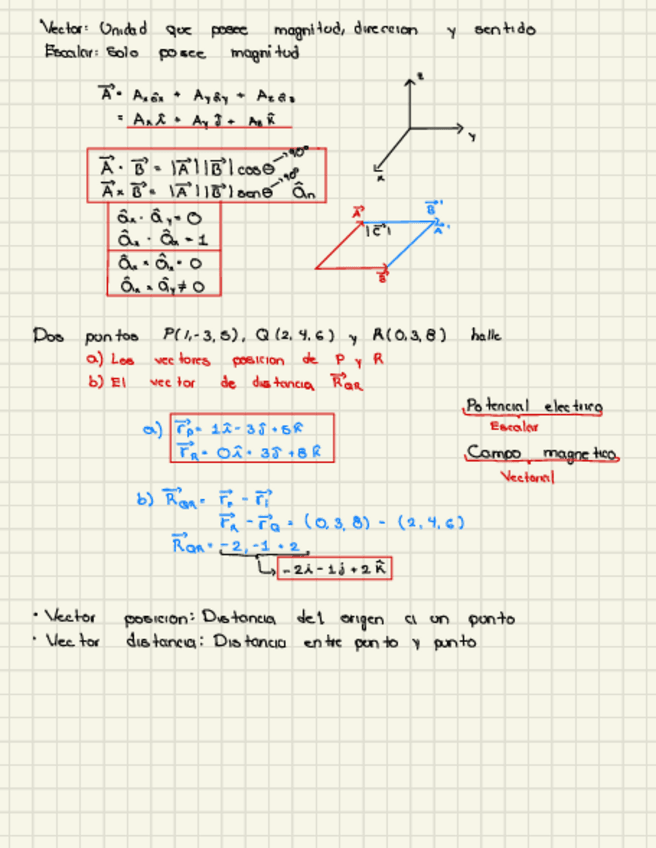 Vector: Unidad que posee magnitud, direccion y sentido
Escalar: Solo posee magnitud
z
y
x
A⃗ = Axâx + Ayây + Azâz
= Ax î + Ay ĵ + Az k̂
A⃗ · B⃗ = |A⃗| |B⃗| cosθ →90°
A⃗ × B⃗ = |A⃗| |B⃗| senθ →90° ân
âx · ây = 0
âx · âx = 1
âx × âx = 0
âx × ây ≠ 0
A⃗ |C⃗'| B⃗'
A⃗'
B⃗
Dos puntos P(1,-3,5), Q(2,4,6) y R(0,3,8) halle
a) Los vectores posicion de P y R
b) El vector de distancia R⃗QR
Potencial electrico
Escalar
Campo magnetico
Vectorial
a) r⃗P = 1î - 3ĵ + 5k̂
r⃗R = 0î + 3ĵ + 8k̂
b) R⃗QR =
r⃗R - r⃗Q = (0,3,8) - (2,4,6)
R⃗QR = -2, -1 + 2
-2i - 1j + 2k̂
· Vector posicion: Distancia del origen a un punto
· Vector distancia: Distancia entre punto y punto